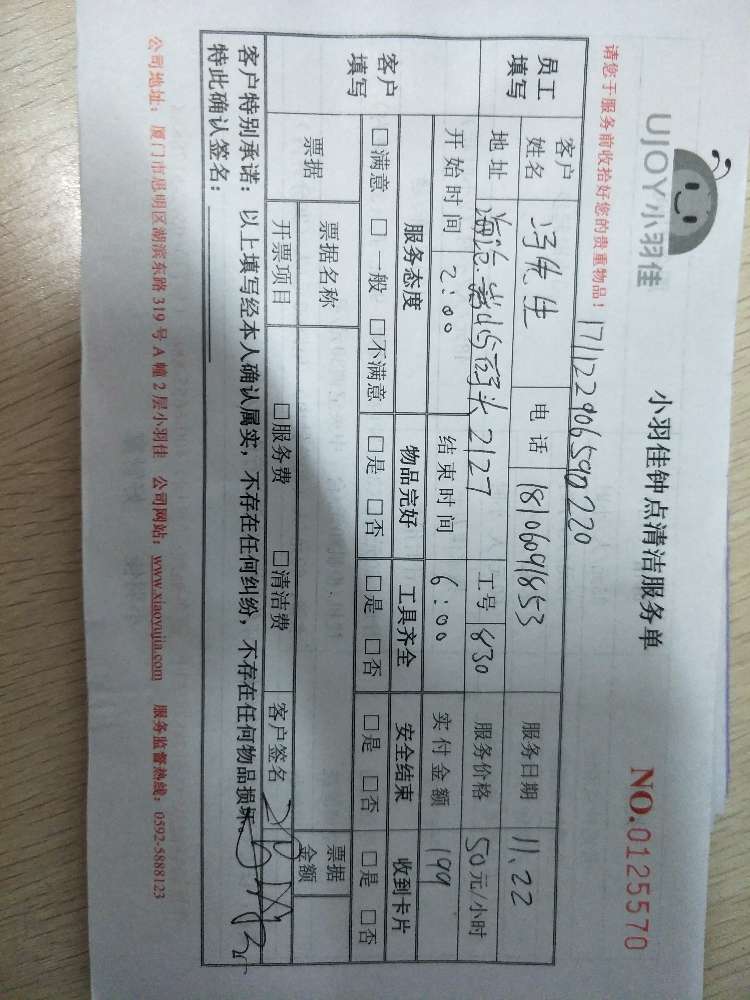 UJOY小羽佳
小羽佳钟点清洁服务单
NO.0125570
请您于服务前收拾好您的贵重物品！
员工填写
客户姓名 冯先生 电话 18106091853 服务日期 11.22
地址 海沧 码头2127 工号 830 服务价格 50元/小时
开始时间 2:00 结束时间 6:00 实付金额 199
客户填写
服务态度 物品完好 工具齐全 安全结束 收到卡片
□满意 □一般 □不满意 □是 □否 □是 □否 □是 □否 □是 □否
票据 票据名称 票据金额
开票项目 □服务费 □清洁费 客户签名
客户特别承诺：以上填写经本人确认属实，不存在任何纠纷，不存在任何物品损坏。
特此确认签名：
公司地址：厦门市思明区湖滨东路319号A幢2层小羽佳 公司网站：www.xiaoyujia.com 服务监督热线：0592-5888123